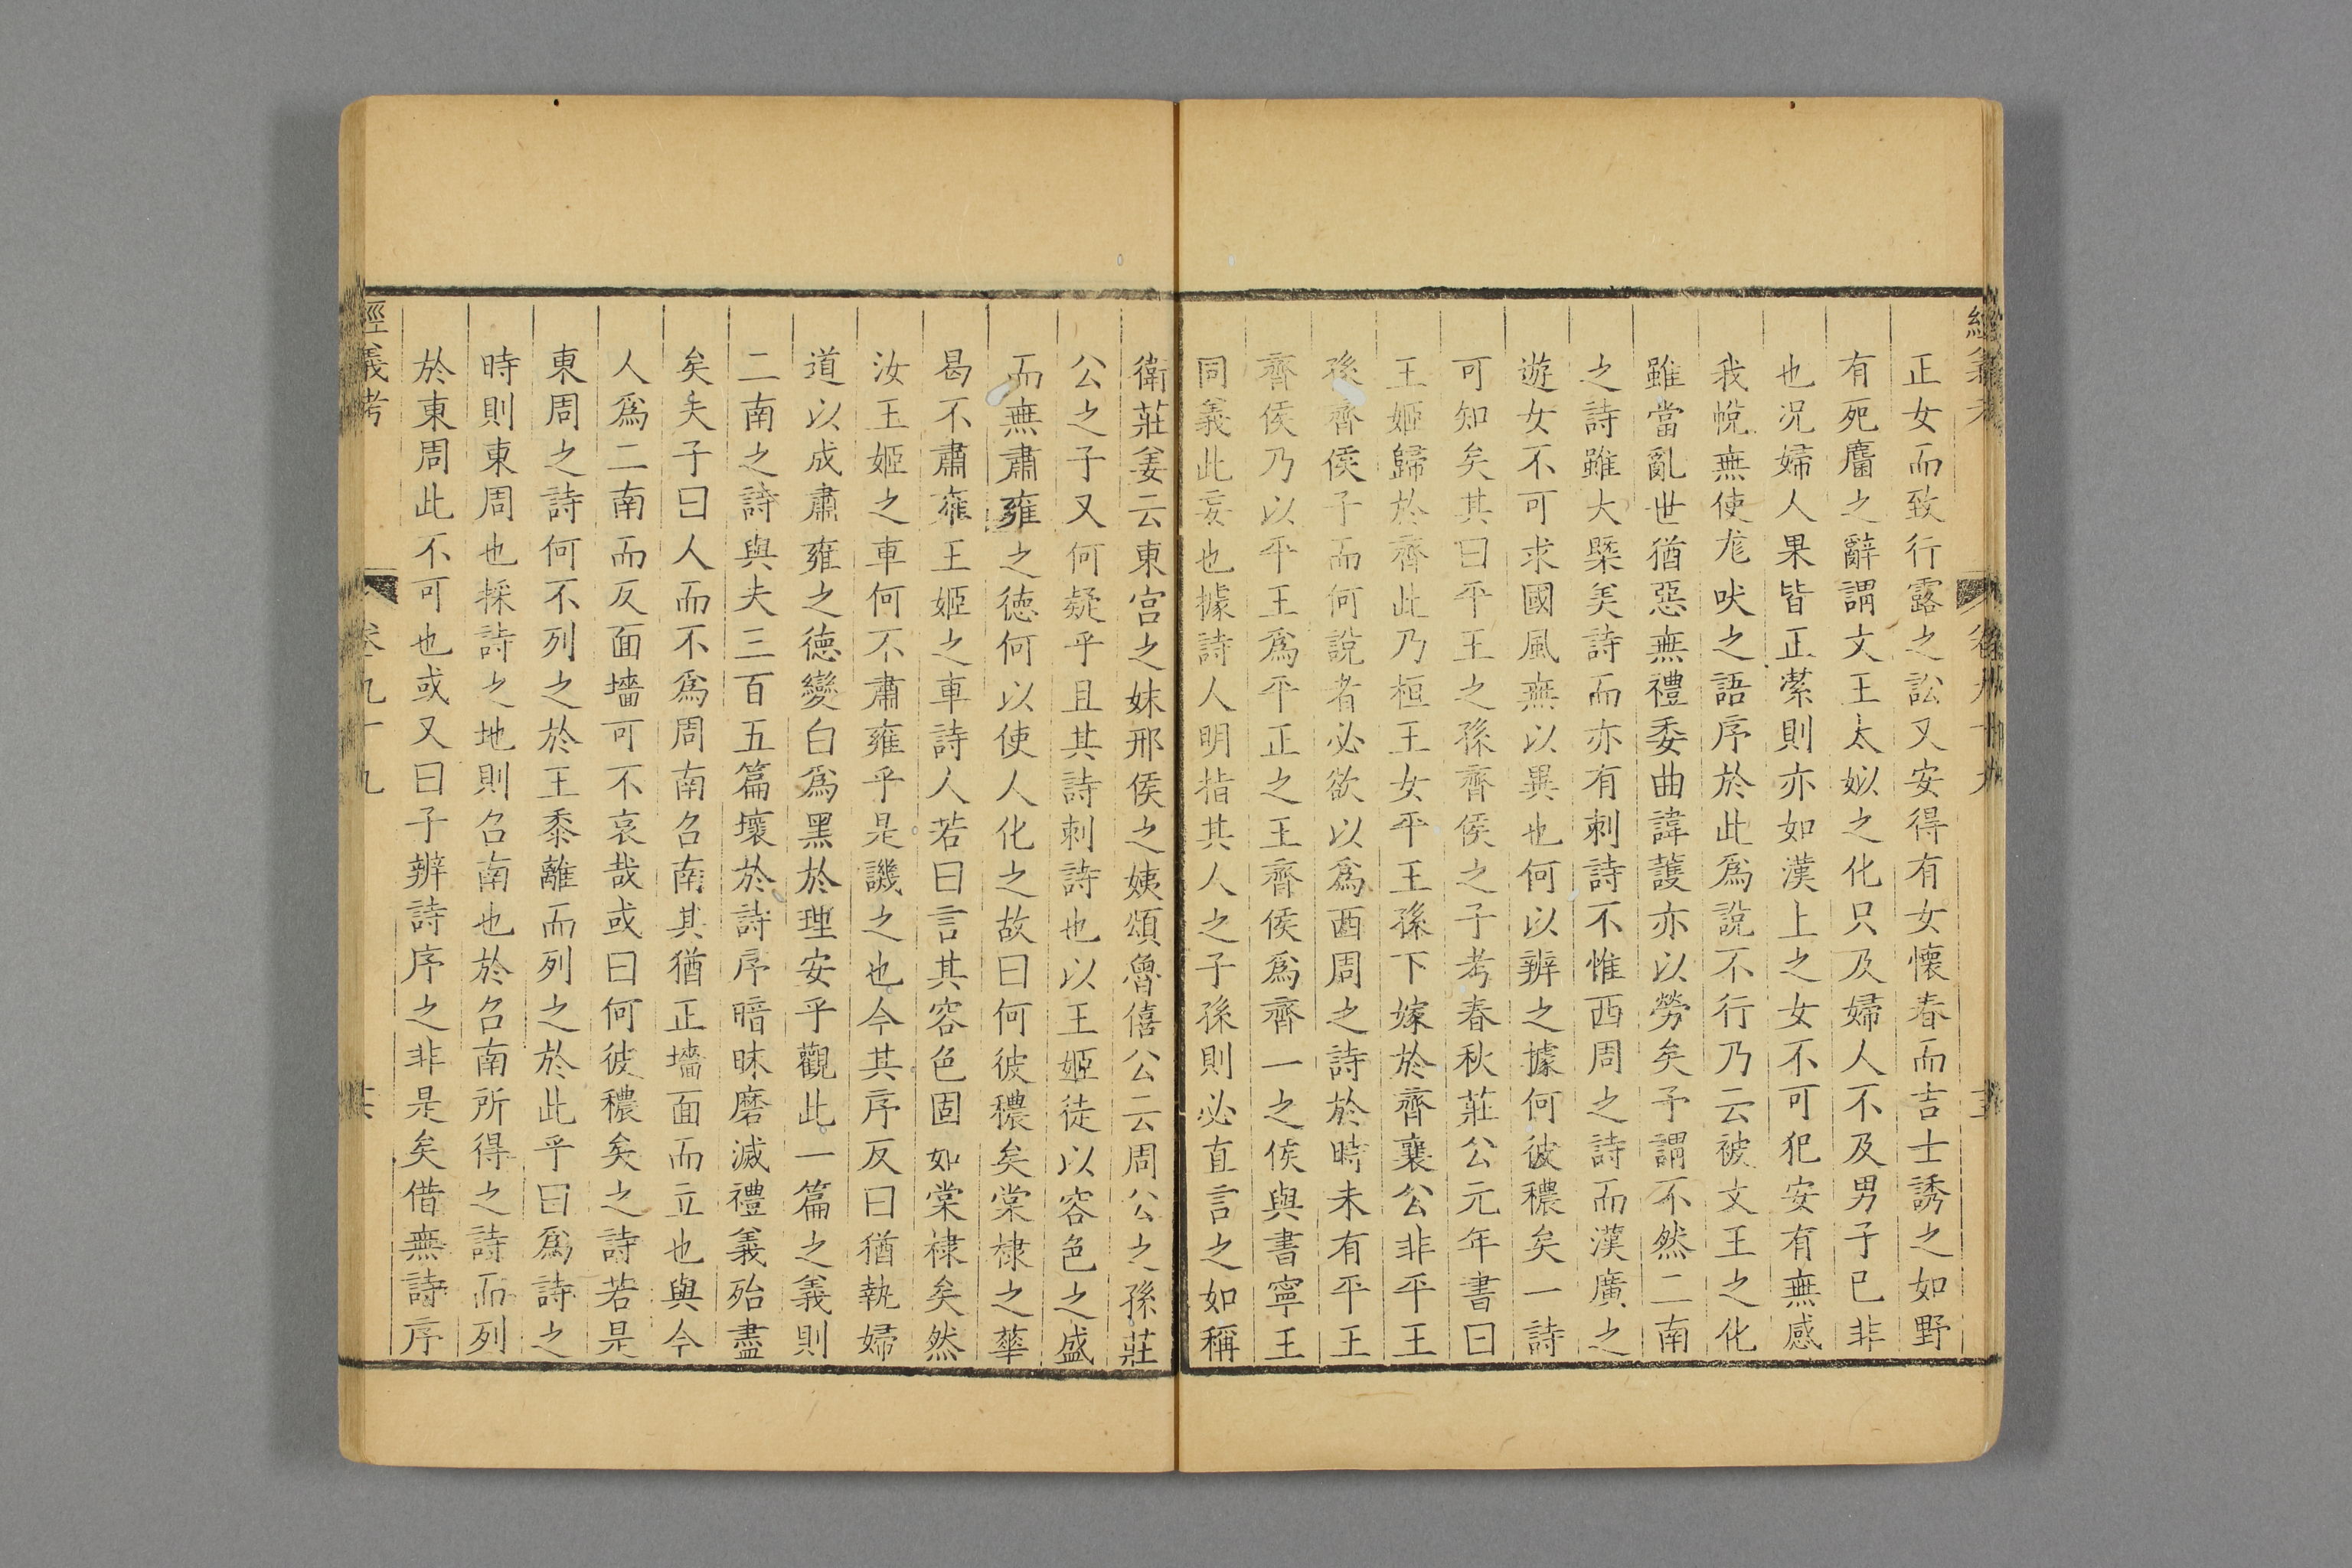 正女而致行露之訟又安得有女懷春而吉士誘之如野
有死麕之辭謂文王太姒之化只及婦人不及男子已非
也况婦人果皆正㓗則亦如漢上之女不可犯安有無感
我帨無使尨吠之語序於此爲說不行乃云被文王之化
雖當亂世猶惡無禮委曲諱護亦以勞矣予謂不然二南
之詩雖大槩美詩而亦有刺詩不惟西周之詩而漢廣之
遊女不可求國風無以異也何以辨之據何彼穠矣一詩
可知矣其曰平王之孫齊侯之子考春秋莊公元年書曰
王姬歸於齊此乃桓王女平王孫下嫁於齊襄公非平王
孫齊侯子而何說者必欲以爲西周之詩於時未有平王
齊侯乃以平王爲平正之王齊侯爲齊一之侯與書寧王
同義此妄也據詩人明指其人之子孫則必直言之如稱
衛莊姜云東宮之妹邢侯之姨頌魯僖公云周公之孫莊
公之子又何疑乎且其詩刺詩也以王姬徒以容色之盛
而無肅雍之德何以使人化之故曰何彼穠矣棠棣之華
曷不肅雍王姬之車詩人若曰言其容色固如棠棣矣然
汝王姬之車何不肅雍乎是譏之也今其序反曰猶執婦
道以成肅雍之德變白爲黑於理安乎觀此一篇之義則
二南之詩與夫三百五篇壞於詩序暗昧磨滅禮義殆盡
矣夫子曰人而不爲周南召南其猶正墻面而立也與今
人爲二南而反面墻可不哀哉或曰何彼穠矣之詩若是
東周之詩何不列之於王黍離而列之於此乎曰爲詩之
時則東周也採詩之地則召南也於召南所得之詩而列
於東周此不可也或又曰子辨詩序之非是矣借無詩序
經義考
卷九十九